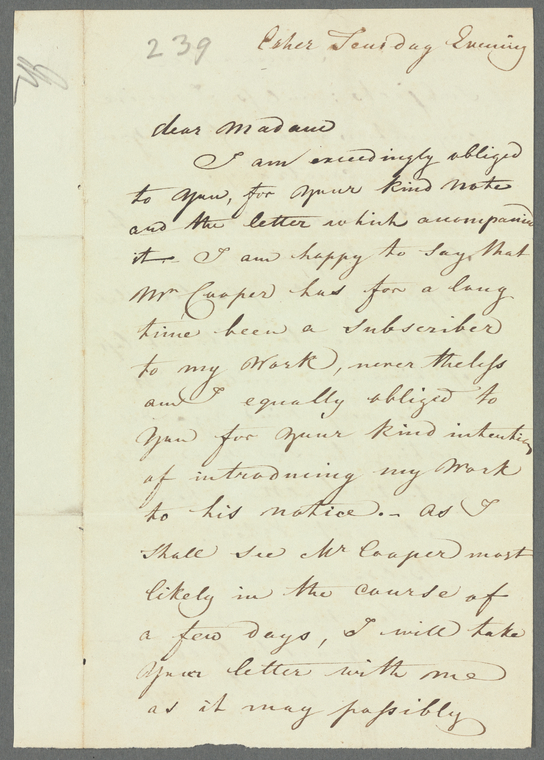 239
Esher Teusday Evening
dear Madam
I am exceedingly obliged
to you, for your kind note
and the letter which accompanied
it. I am happy to say, that
Mr Cooper has for a long
time been a subscriber
to my work, never theless
am I equally obliged to
you for your kind intention
of introducing my work
to his notice. - As I
shall see Mr Cooper most
likely in the course of
a few days, I will take
your letter with me
as it may possibly